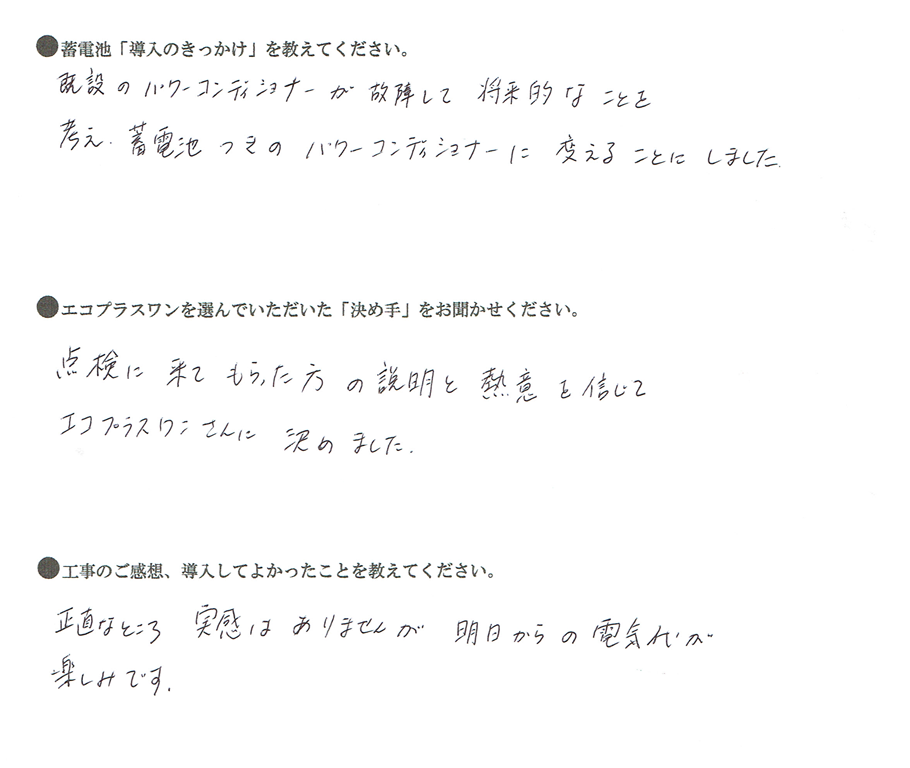 ●蓄電池「導入のきっかけ」を教えてください。
既設のパワーコンディショナーが故障して将来的なことを
考え.蓄電池つきのパワーコンディショナーに変えることにしました.
●エコプラスワンを選んでいただいた「決め手」をお聞かせください。
点検に来てもらった方の説明と熱意を信じて
エコプラスワンさんに決めました.
●工事のご感想、導入してよかったことを教えてください。
正直なところ実感はありませんが明日からの電気代が
楽しみです.